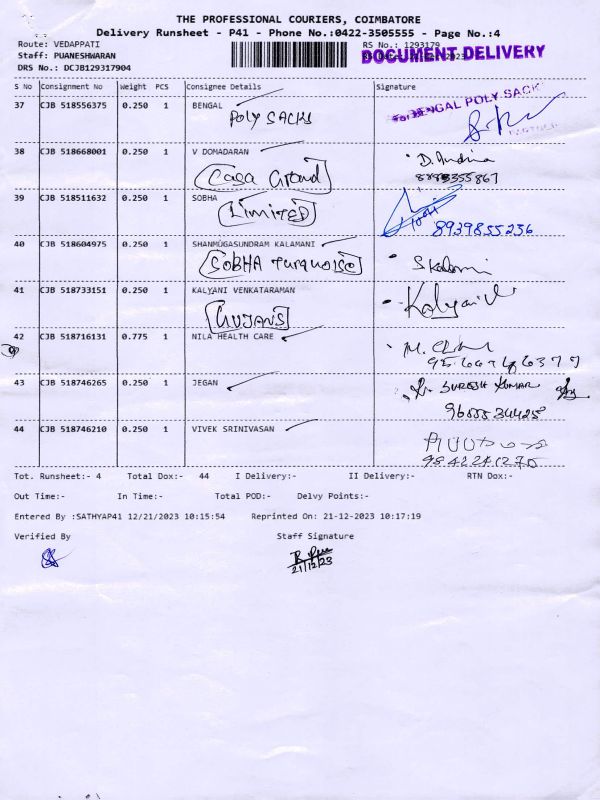 THE PROFESSIONAL COURIERS, COIMBATORE
Delivery Runsheet - P41 - Phone No.:0422-3505555 - Page No.:4
Route: VEDAPPATI
RS No.: 1293179
DOCUMENT DELIVERY
Staff: PUANESHWARAN
DRS No.: DCJB129317904
S No Consignment No Weight PCS Consignee Details Signature
37 CJB 518556375 0.250 1 BENGAL
POLY SACKS
For BENGAL POLY SACK
PARTNER
38 CJB 518668001 0.250 1 V DOMADARAN
Casa Grand
39 CJB 518511632 0.250 1 SOBHA
LIMITED
8939855236
40 CJB 518604975 0.250 1 SHANMUGASUNDRAM KALAMANI
SOBHA Turquoise
S Kalamani
41 CJB 518733151 0.250 1 KALYANI VENKATARAMAN
42 CJB 518716131 0.775 1 NILA HEALTH CARE
43 CJB 518746265 0.250 1 JEGAN
SURESH KUMAR
44 CJB 518746210 0.250 1 VIVEK SRINIVASAN
Tot. Runsheet:- 4 Total Dox:- 44 I Delivery:- II Delivery:- RTN Dox:-
Out Time:- In Time:- Total POD:- Delvy Points:-
Entered By :SATHYAP41 12/21/2023 10:15:54 Reprinted On: 21-12-2023 10:17:19
Verified By Staff Signature
21/12/23